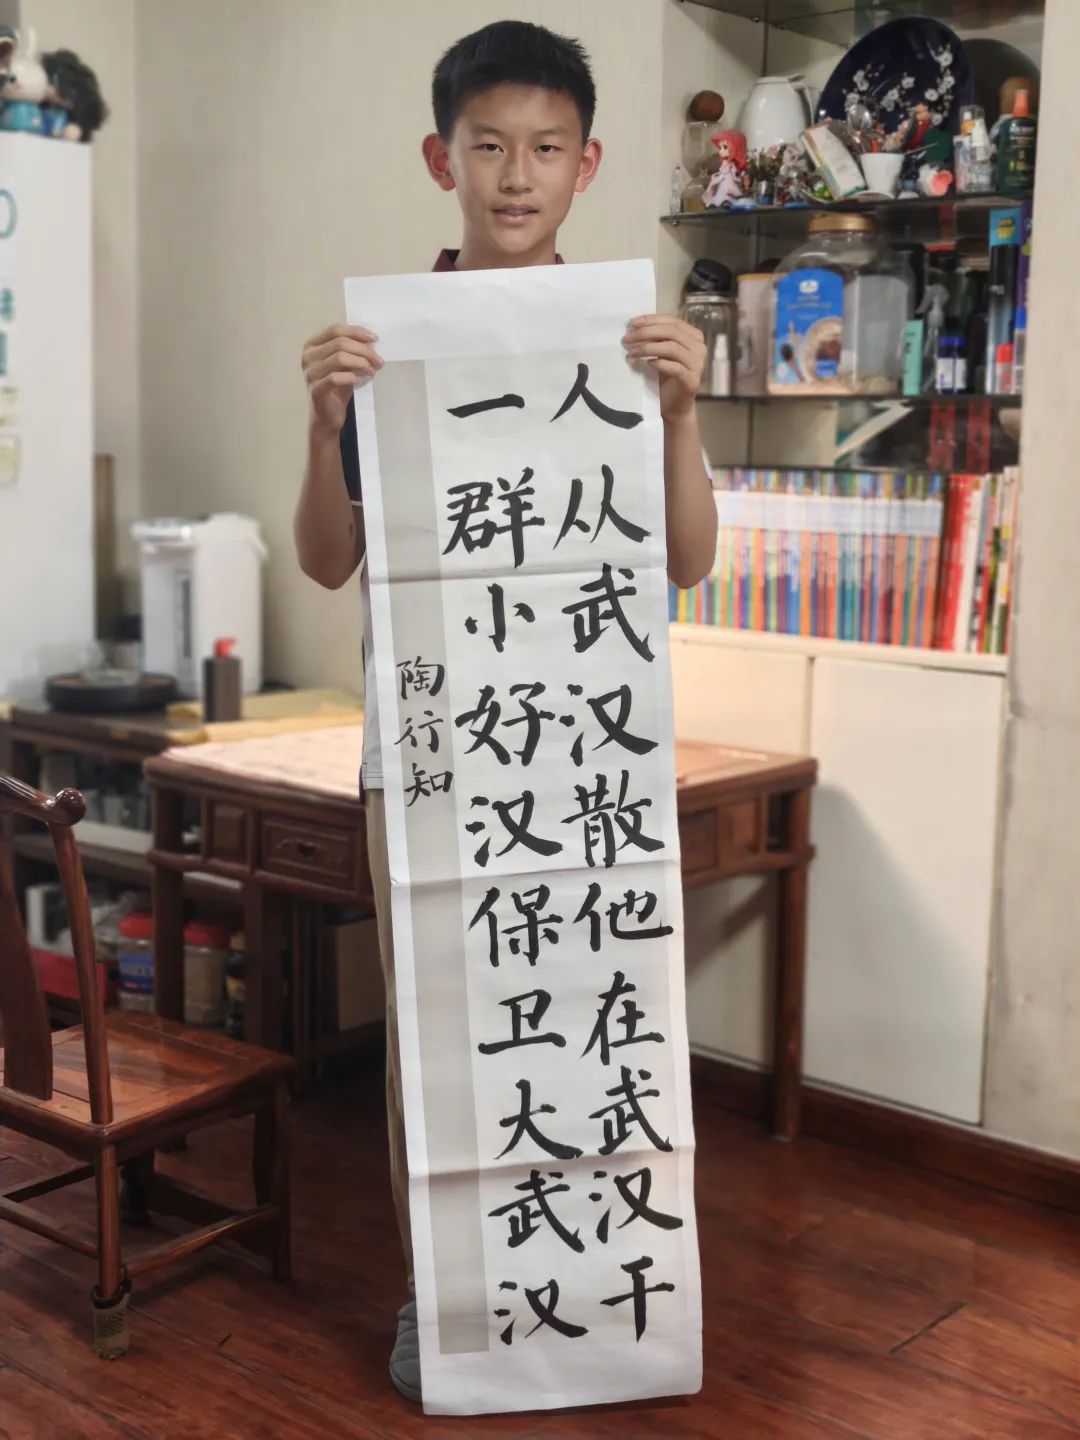 人从武汉散他在武汉干
一群小好汉保卫大武汉
陶行知